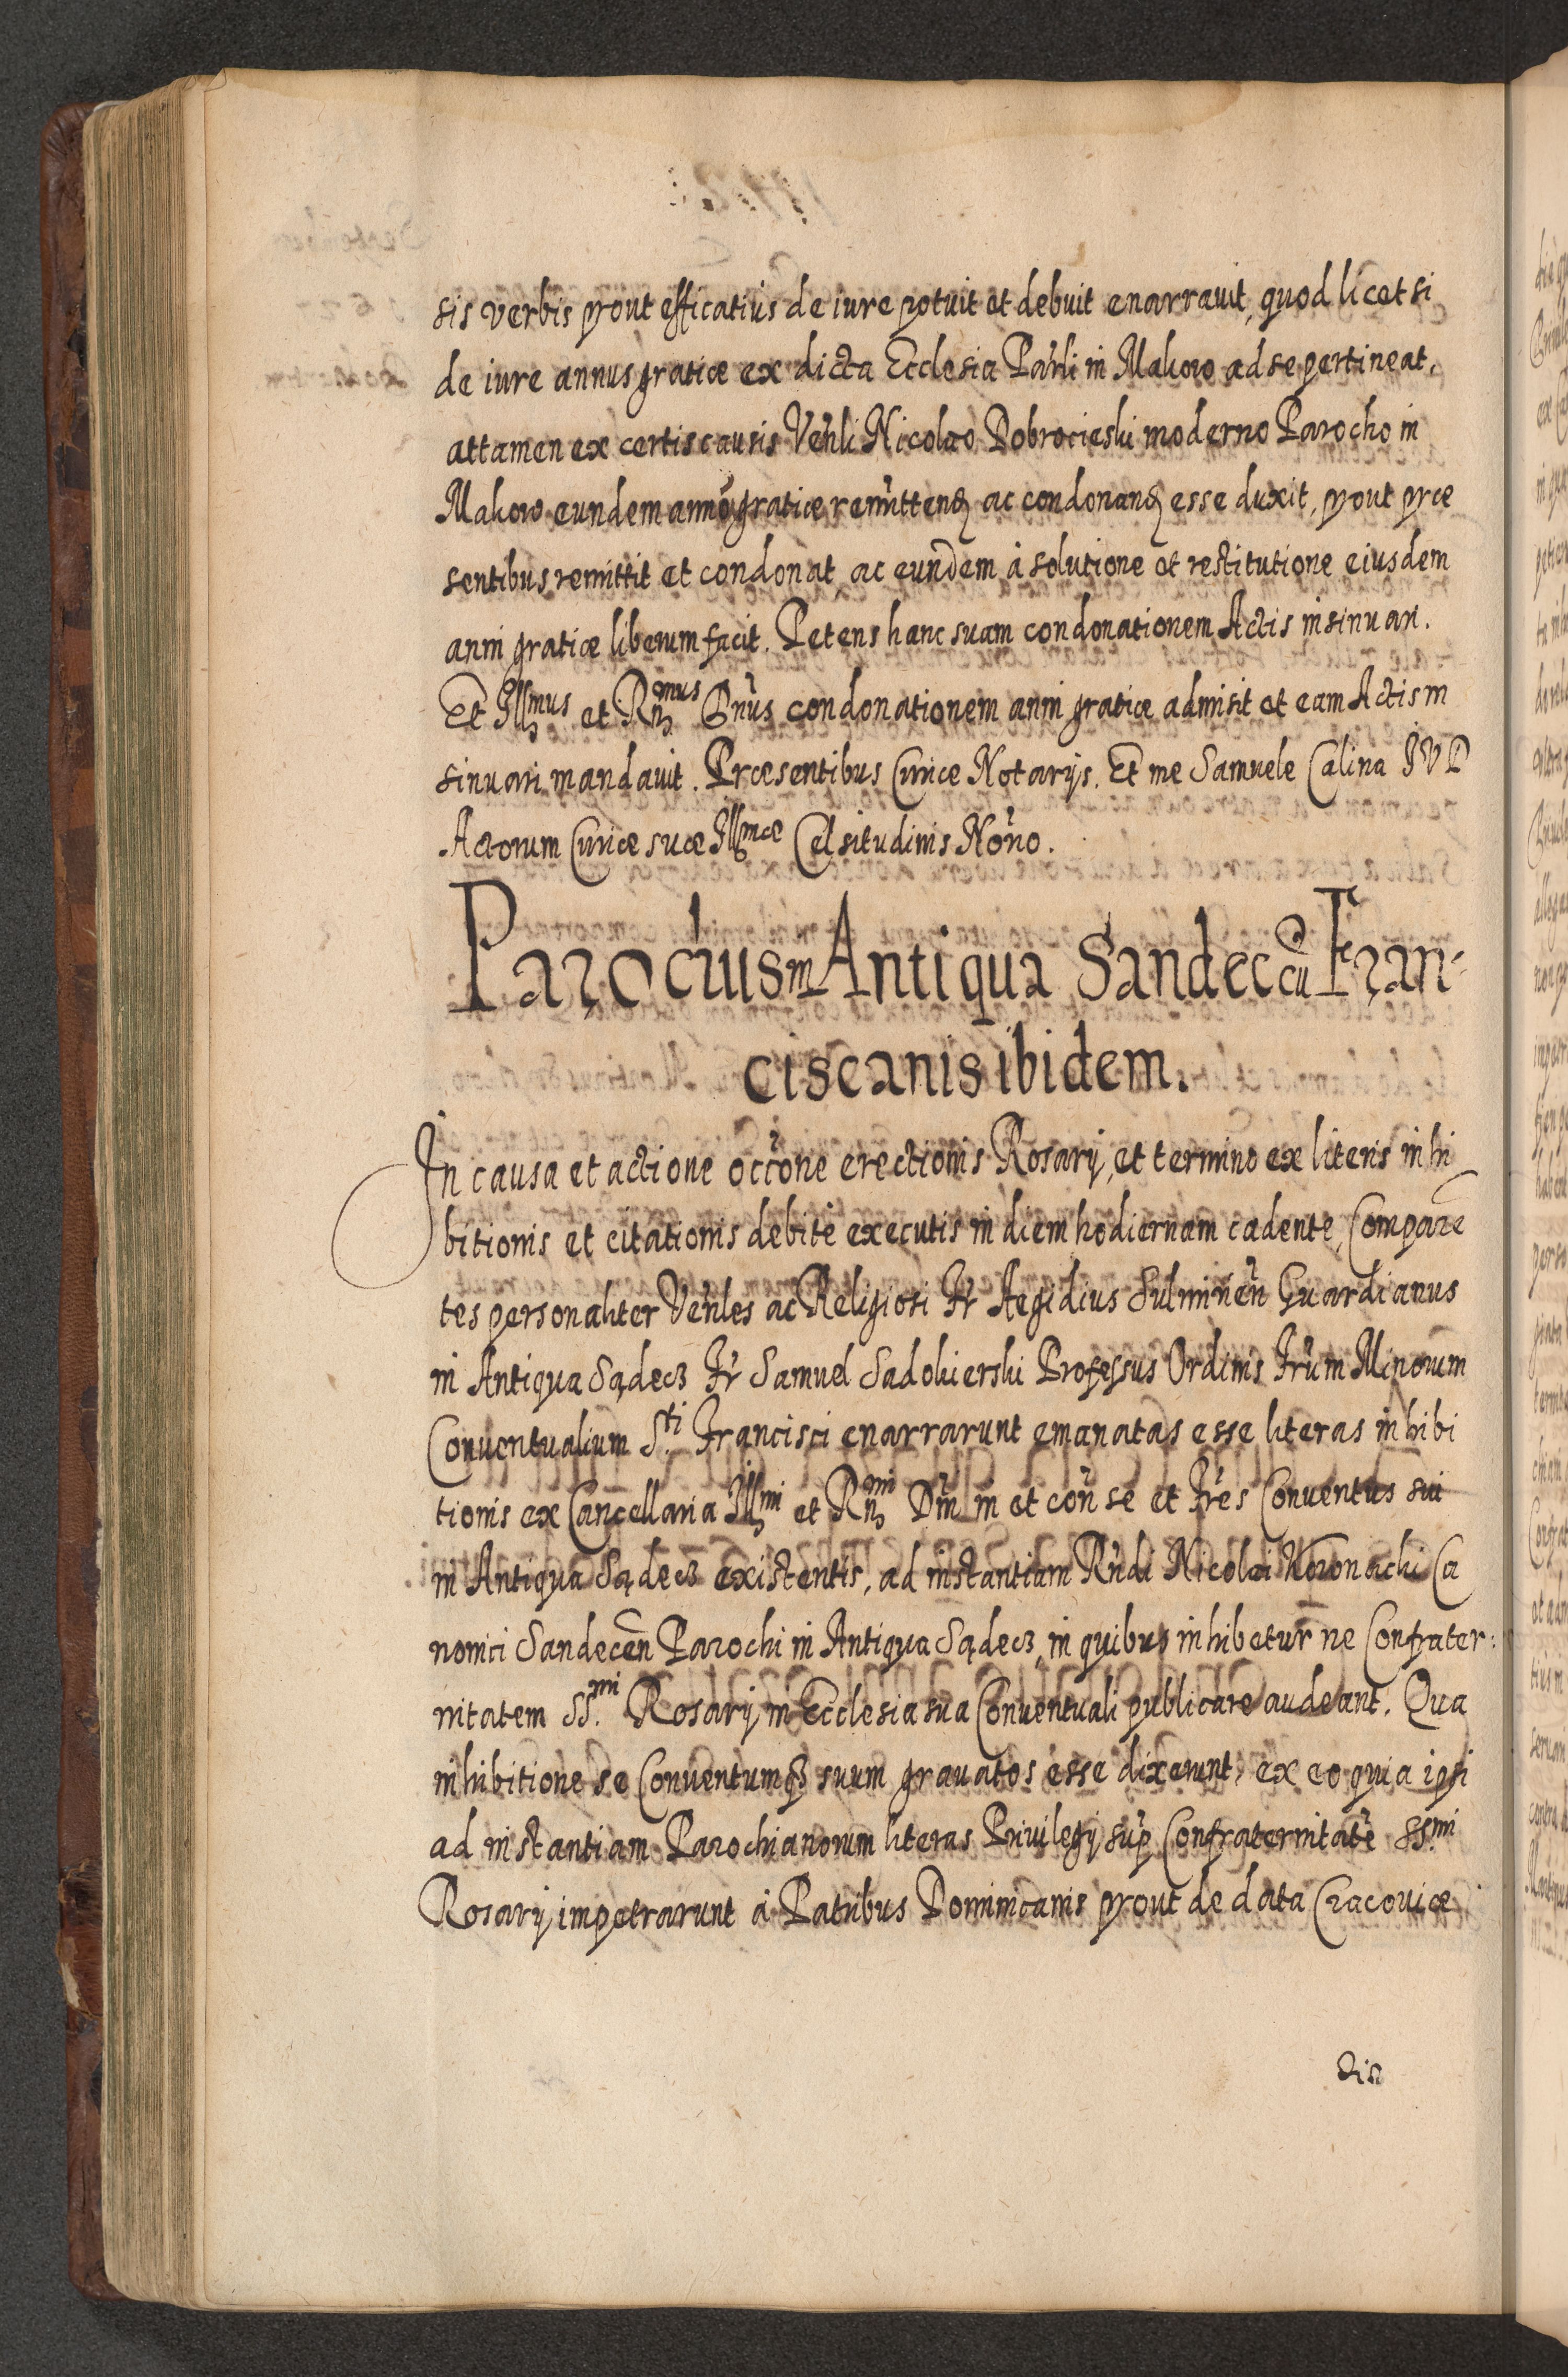 sis verbis prout efficatius de iure potuit et debuit enarrauit, quod licet si
de iure annus gratiæ ex dicta Ecclesia Parli in Makow ad se pertineat,
attamen ex certis causis Venli Nicolao Dobrocieski moderno Parocho in
Makow eundem annũ gratiæ remittenḍ ac condonanḍ esse duxit, prout præ
sentibus remittit et condonat ac eundem à solutione et restitutione eiusdem
anni gratiæ liberum facit. Petens hanc suam condonationem Actis insinuari.
Et Illmus et Rnmus Dnus condonationem anni gratiæ admisit et eam Actis in
sinuari mandauit. Præsentibus Curiæ Notarijs. Et me Samuele Calina IVD
Actorum Curiæ suæ Illmæ Celsitudinis Norio.
Parochus in Antiqua Sandec cũ Fran-
ciscanis ibidem.
In causa et actione occone erectionis Rosarij, et termino ex literis inhi
bitionis et citationis debitè executis in diem hodiernam cadente, Comparẽ
tes personaliter Venles ac Religiosi Fr Aegidius Sulminen Guardianus
in Antiqua Sądecz Fr Samuel Sadokierski Professus Ordinis Frum Minorum
Conuentualium Sti Francisci enarrarunt emanatas esse literas inhibi
tionis ex Cancellaria Illmi et Rnmi Dni in et con se et Fres Conuentus sui
in Antiqua Sądecz existentis, ad instantiam Rndi Nicolai Koronachi Ca
nonici Sandecen Parochi in Antiqua Sądecz, in quibus inhibetur ne Confrater:
nitatem SS.mi Rosarij in Ecclesia sua Conuentuali publicare audeant. Qua
inhibitione se Conuentumq3 suum grauatos esse dixerunt, ex eo quia ipsi
ad instantiam Parochianorum literas Priuilegij sup Confraternitatẽ SS.mi
Rosarij impetrarunt à Patribus Dominicanis prout de data Cracouiæ